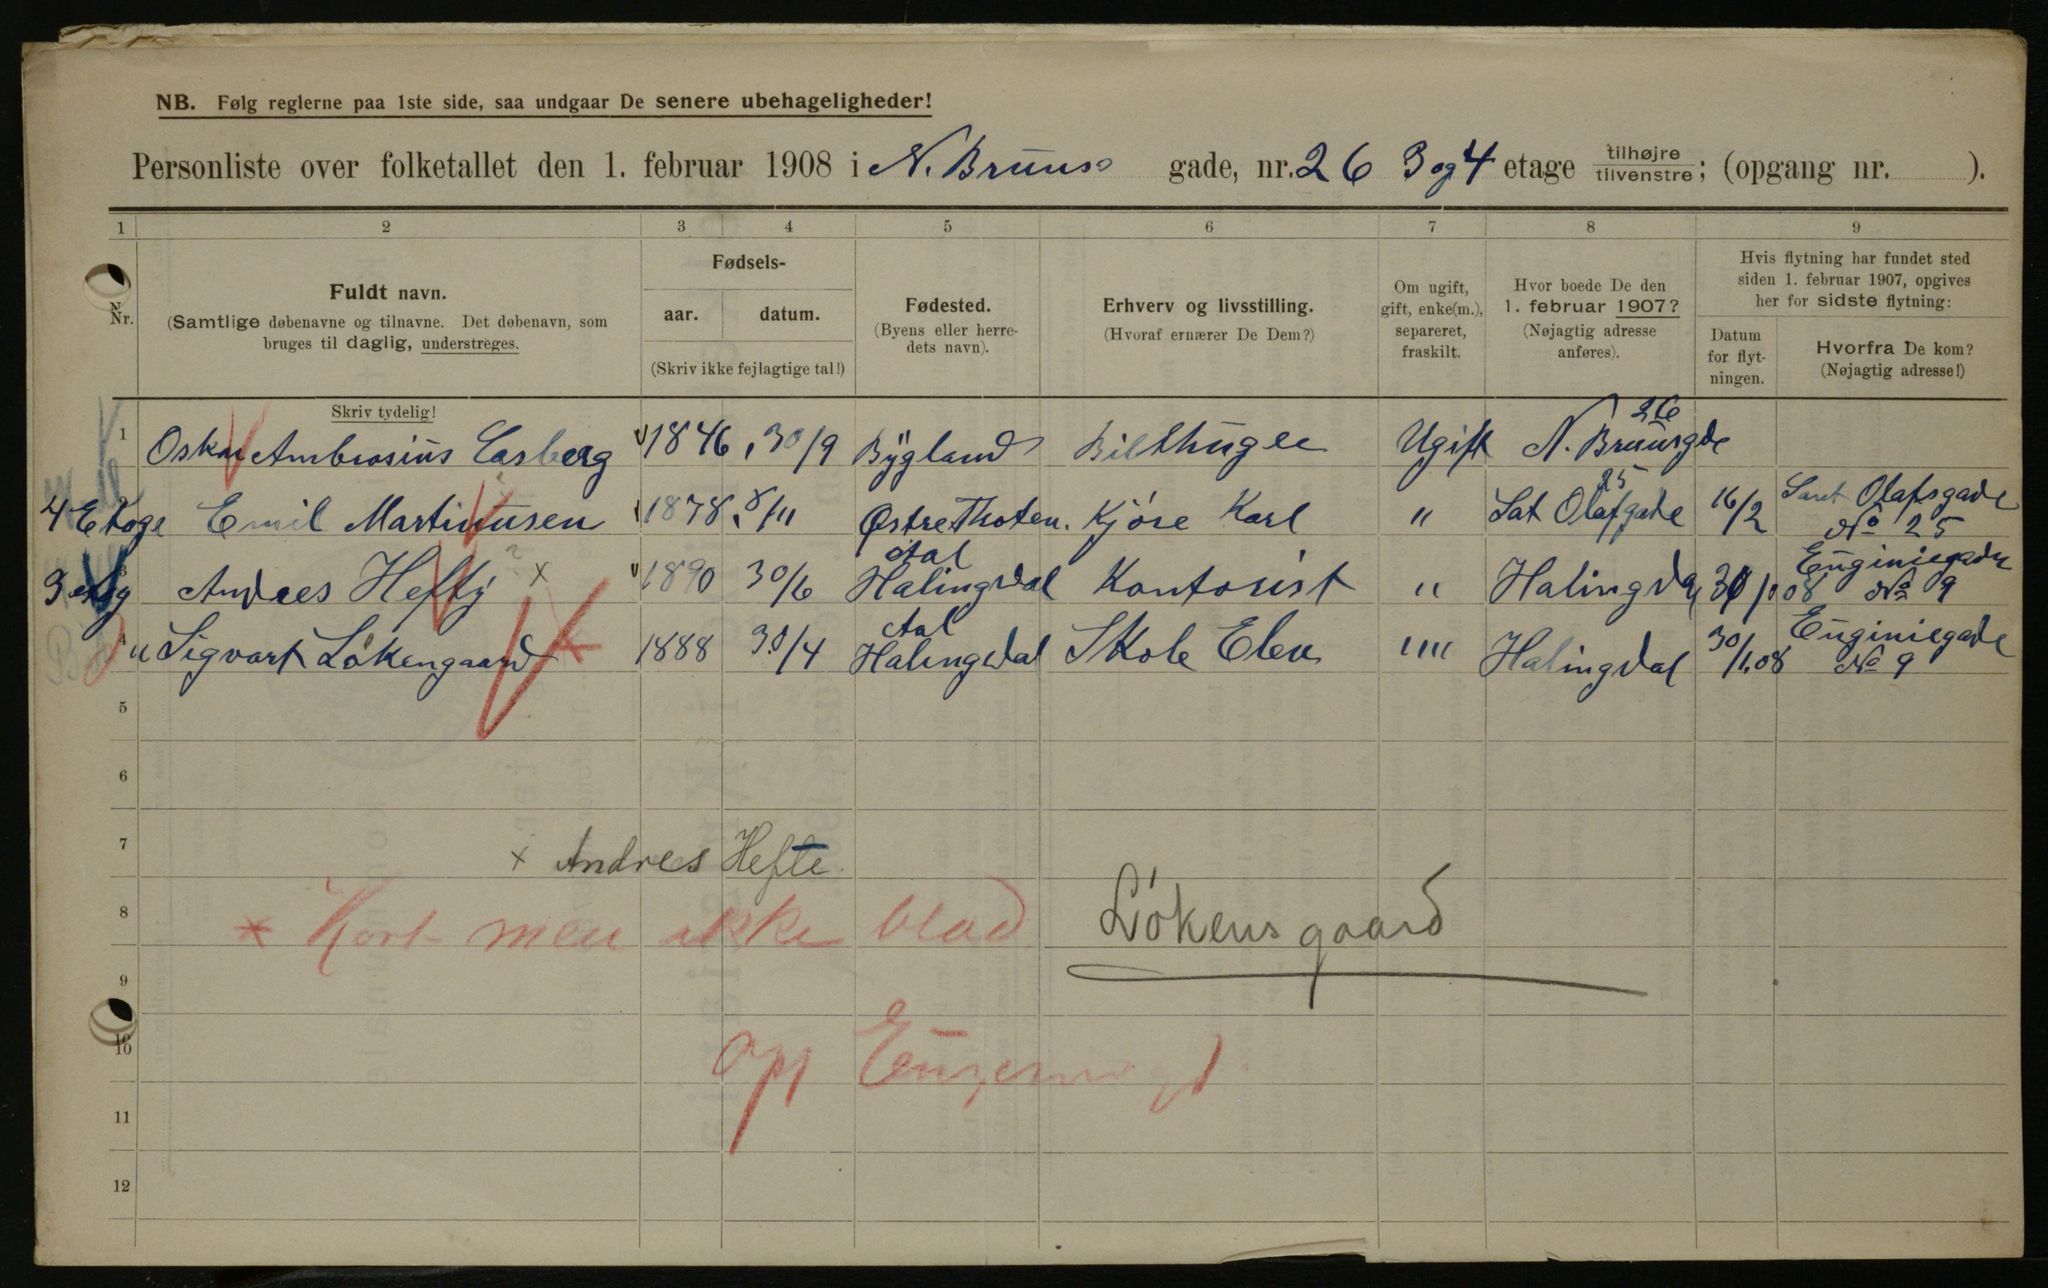 NB. Følg reglerne paa 1ste side, saa undgaar De senere ubehageligheder!
Personliste over folketallet den 1. februar 1908 i N. Bruns gade, nr. 26 3 og 4 etage tilhøjre tilvenstre; (opgang nr. ).
1 2 3 4 5 6 7 8 9
Nr.
Fuldt navn.
(Samtlige døbenavne og tilnavne. Det døbenavn, som
bruges til daglig, understreges.
Skriv tydelig!
Fødsels-
aar. datum.
(Skriv ikke fejlagtige tal!)
Fødested.
(Byens eller herre-
dets navn).
Erhverv og livsstilling.
(Hvoraf ernærer De Dem?)
Om ugift,
gift, enke(m.),
separeret,
fraskilt.
Hvor boede De den
1. februar 1907?
(Nøjagtig adresse
anføres).
Hvis flytning har fundet sted
siden 1. februar 1907, opgives
her for sidste flytning:
Datum
for flyt-
ningen.
Hvorfra De kom?
(Nøjagtig adresse!)
1 Oskar Ambrosius Casberg 1846 30/9 Bÿgland Ugift N. Bruusgde 26
4 Etage Emil Martinusen 1878 8/11 Østre Thoten. Kjöre Karl " Sat Olafgade 25 16/2 Sanct Olafsgade No 25
3 Andres Hefty x 1890 30/6 Aal Halingdal Kontorist " Halingdal 30/1 08 Euginiegade No 9
4 " Sigvart Lökengaard 1888 30/4 Aal Halingdal Skole Elev "" Halingdal 30/1.08 Euginiegade No 9
5
6
7 x Andres Hefte.
8 x Kort men ikke blad Lökensgaard
9
10 opg
11
12